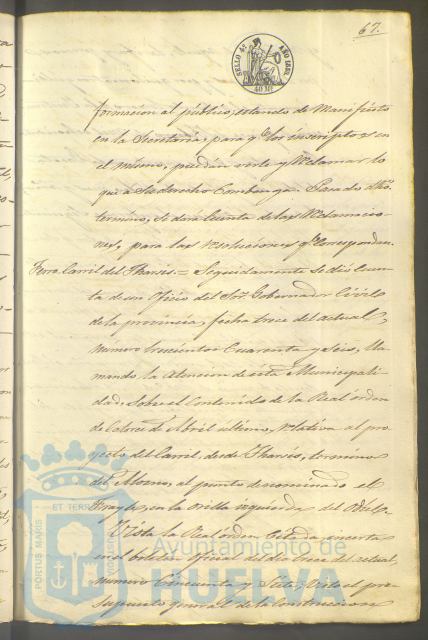 67.
SELLO 4º AÑO 1862.
40 Ms
formacion al público, estando de Manifiesto
en la Secretaría, para qe los inscriptos en
el mismo, puedan verle y Reclamar lo
que a su derecho Convenga. Pasado dho
termino, se dara Cuenta de las Reclamacio-
nes, para las resoluciones qe Correspondan.
Ferro Carril del Tharsis = Seguidamente se dió Cuen-
ta de un Oficio del Sor. Gobernador Civil
de la provincia, fecha trece del actual,
número trescientos Cuarenta y Seis, Lla-
mando la Atencion de esta Municipali-
dad, sobre el Contenido de la Real órden
de Catorce de Abril último, relativa al pro-
yecto del Carril, desde Tharsis, termino
del Alosno, al punto denominado el
Frayle, en la orilla izquierda del Odiel.
Vista la Real órden Citada, inserta
en el boletin oficial del dia trece del actual,
número Cincuenta y Siete; Visto el pre-
supuesto general de la Construccion
PORTUS MARIS ET TERRAE CUSTODIA
Ayuntamiento de
HUELVA